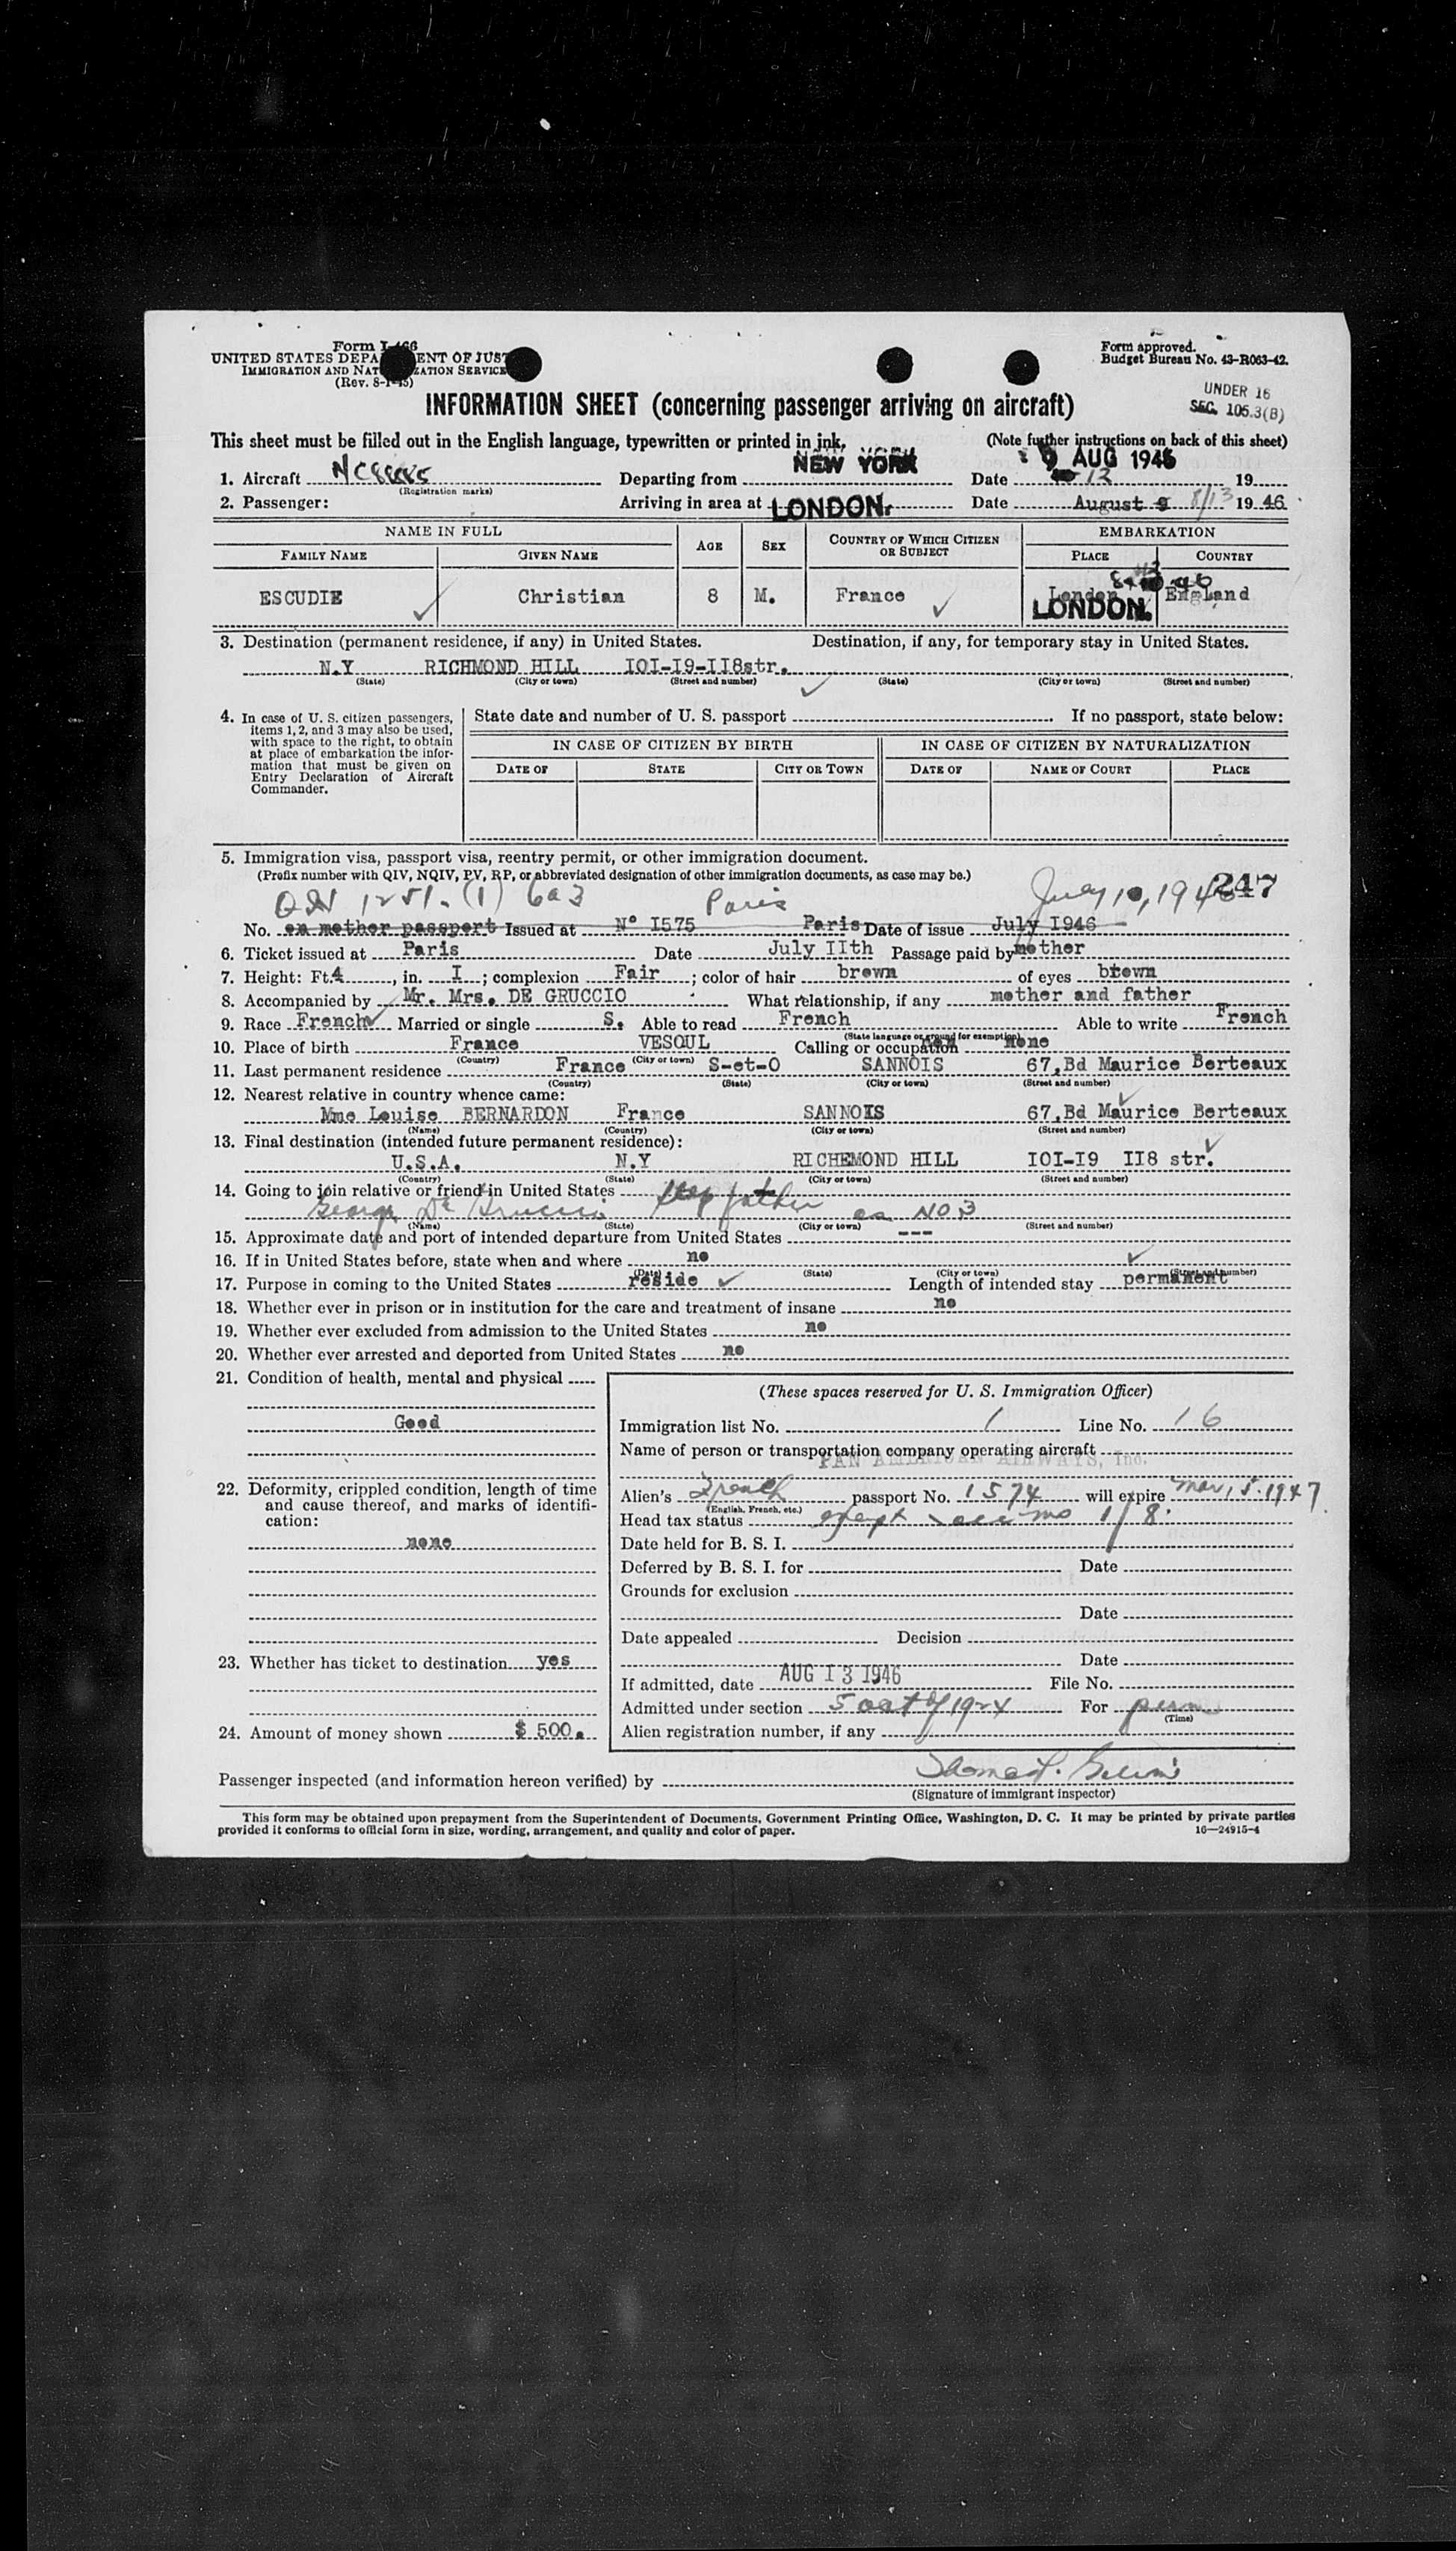 Form I-466
UNITED STATES DEPARTMENT OF JUSTICE
IMMIGRATION AND NATURALIZATION SERVICE
(Rev. 8-1-45)
Form approved.
Budget Bureau No. 43-R063-42.
UNDER 16
SEC. 105.3(B)
INFORMATION SHEET (concerning passenger arriving on aircraft)
This sheet must be filled out in the English language, typewritten or printed in ink. (Note further instructions on back of this sheet)
1. Aircraft (Registration marks) Departing from NEW YORK Date 9 AUG 1946 12 19
2. Passenger: Arriving in area at LONDON. Date August 9 8/13 1946
NAME IN FULL AGE SEX COUNTRY OF WHICH CITIZEN OR SUBJECT EMBARKATION
FAMILY NAME GIVEN NAME PLACE COUNTRY
ESCUDIE Christian 8 M. France London England
LONDON.
3. Destination (permanent residence, if any) in United States. Destination, if any, for temporary stay in United States.
N.Y RICHMOND HILL IOI-I9-II8str.
(State) (City or town) (Street and number) (State) (City or town) (Street and number)
4. In case of U. S. citizen passengers, items 1, 2, and 3 may also be used, with space to the right, to obtain at place of embarkation the information that must be given on Entry Declaration of Aircraft Commander.
State date and number of U. S. passport If no passport, state below:
IN CASE OF CITIZEN BY BIRTH IN CASE OF CITIZEN BY NATURALIZATION
DATE OF STATE CITY OR TOWN DATE OF NAME OF COURT PLACE
5. Immigration visa, passport visa, reentry permit, or other immigration document.
(Prefix number with QIV, NQIV, PV, RP, or abbreviated designation of other immigration documents, as case may be.)
1251. (1) 6a3 Paris July 10, 1946 247
No. on mother passport Issued at N° I575 Paris Date of issue July I946
6. Ticket issued at Paris Date July IIth Passage paid by mother
7. Height: Ft. 4, in. I; complexion Fair; color of hair brown of eyes brown
8. Accompanied by Mr. Mrs. DE GRUCCIO What relationship, if any mother and father
9. Race French Married or single S. Able to read French Able to write French
(State language or ground for exemption)
10. Place of birth France VESOUL Calling or occupation none
(Country) (City or town)
11. Last permanent residence France S-et-O SANNOIS 67,Bd Maurice Berteaux
(Country) (State) (City or town) (Street and number)
12. Nearest relative in country whence came:
Mme Louise BERNARDON France SANNOIS 67,Bd Maurice Berteaux
(Name) (Country) (City or town) (Street and number)
13. Final destination (intended future permanent residence):
U.S.A. N.Y RICHEMOND HILL IOI-I9 II8 str.
(Country) (State) (City or town) (Street and number)
14. Going to join relative or friend in United States step father
George De Gruccio as NO 3
(Name) (State) (City or town) (Street and number)
15. Approximate date and port of intended departure from United States ---
16. If in United States before, state when and where no
(Date) (State) (City or town) (Street and number)
17. Purpose in coming to the United States reside Length of intended stay permanent
18. Whether ever in prison or in institution for the care and treatment of insane no
19. Whether ever excluded from admission to the United States no
20. Whether ever arrested and deported from United States no
21. Condition of health, mental and physical
Good
22. Deformity, crippled condition, length of time and cause thereof, and marks of identification:
none
23. Whether has ticket to destination yes
24. Amount of money shown $ 500.
(These spaces reserved for U. S. Immigration Officer)
Immigration list No. 1 Line No. 16
Name of person or transportation company operating aircraft
PAN AMERICAN AIRWAYS, Inc.
Alien's French passport No. 1574 will expire Mar, 5. 1947
(English, French, etc.)
Head tax status 1/8.
Date held for B. S. I.
Deferred by B. S. I. for Date
Grounds for exclusion
Date
Date appealed Decision
Date
If admitted, date AUG 13 1946 File No.
Admitted under section 5 act of 1924 For perm
(Time)
Alien registration number, if any
Passenger inspected (and information hereon verified) by
(Signature of immigrant inspector)
This form may be obtained upon prepayment from the Superintendent of Documents, Government Printing Office, Washington, D. C. It may be printed by private parties
provided it conforms to official form in size, wording, arrangement, and quality and color of paper. 16—24915-4